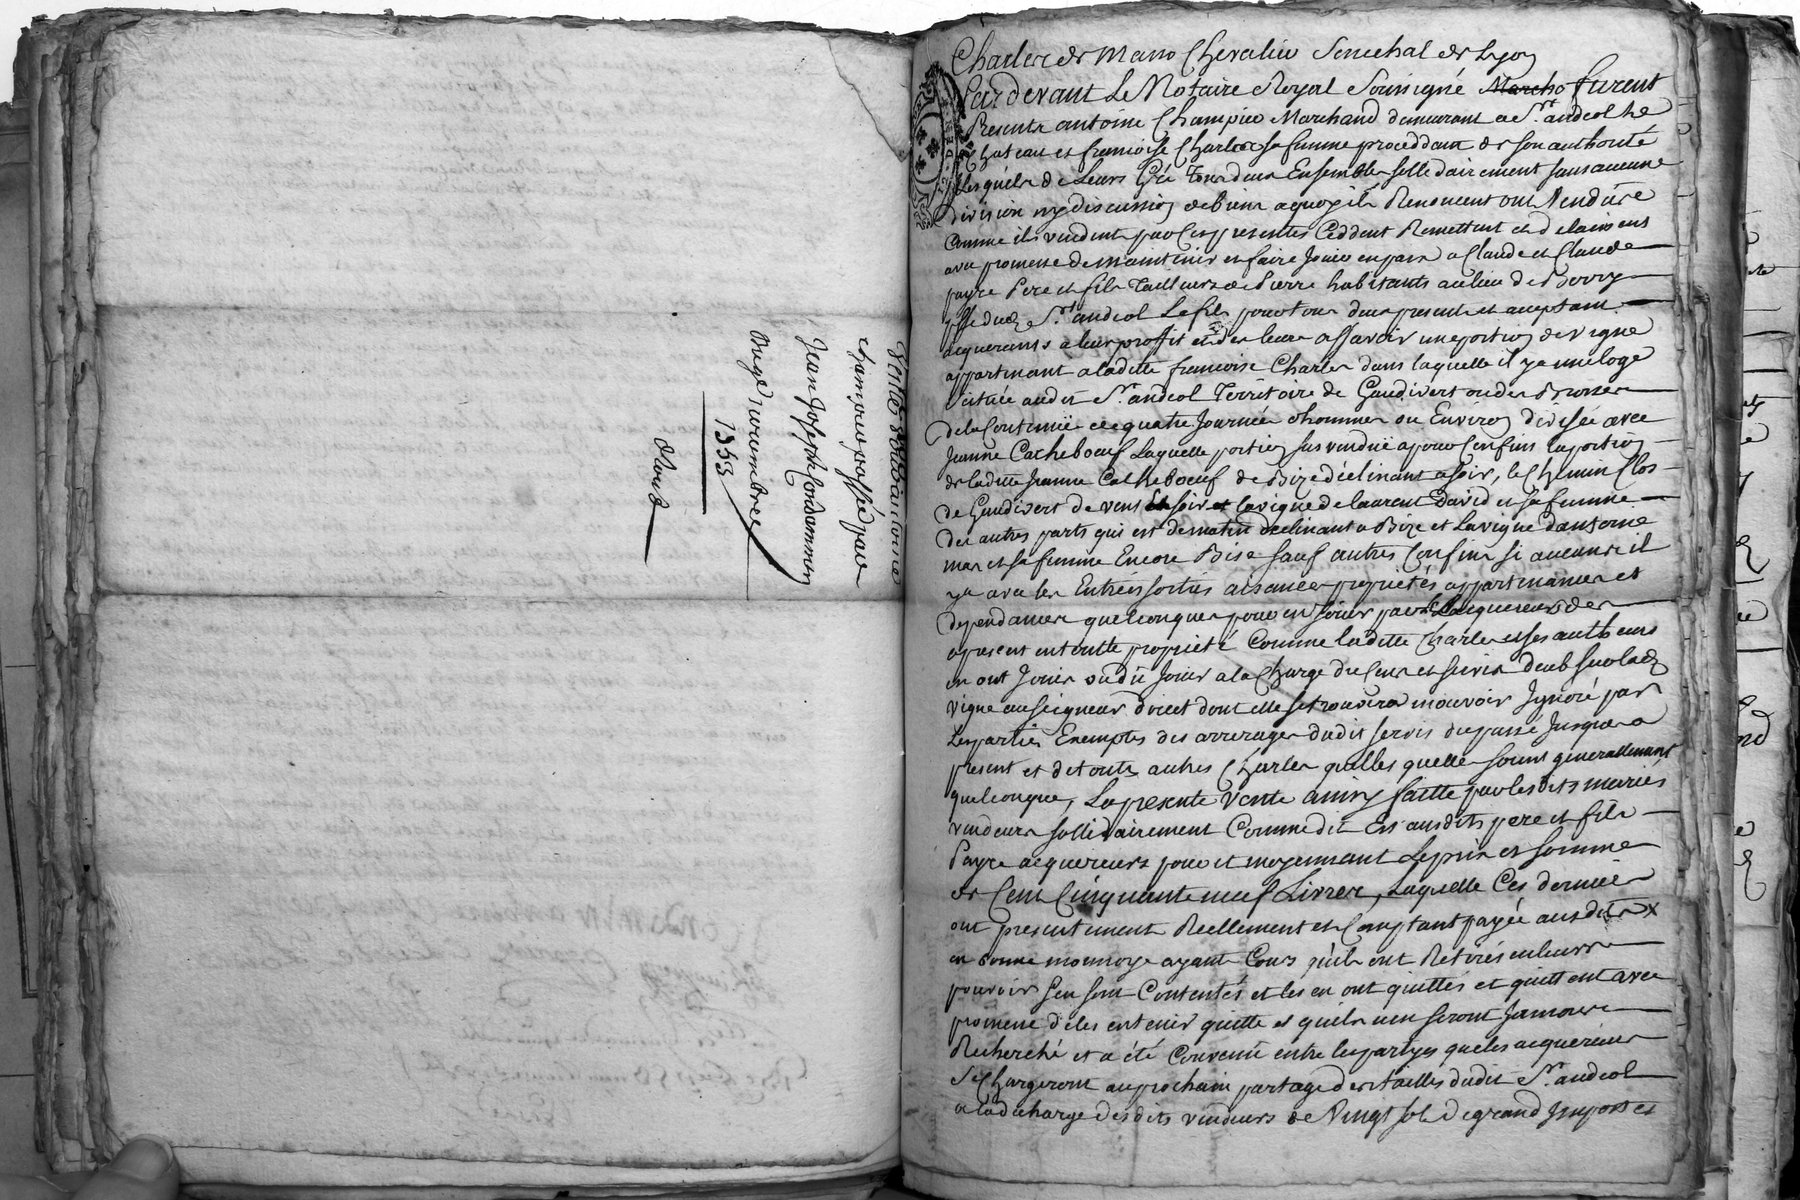 Vente
champier passée par
Jean Joseph Condamines
Du 28 novembre
1753
Charles de Masso Chevalier Senechal de Lyon
Pardevant Le Notaire Royal Soussigné furent
Presents antoine Champier Marchand demeurant a St. andeol le
Chateau et francoise Charles sa femme proceddant de son authorité
Lesquels de Leurs Gré Tous deux Ensembles sollidairement sans aucune
division ny discussion de biens a quoy ils Renoncent ont Vendüe
Comme ils vendent par Ces presentes Ceddent Remettent et delaissent
avec promesse de maintenir et faire Jouir en paix a Claude et Claude
payre Pere et fils Tailleurs de Pierre habitants au lieu de
St. andeol Le fils pour tous deux present et acceptant
acquerants a leur profit et des leurs assavoir une portion de vigne
appartenant a ladite francoise Charles dans laquelle il y a une loge
Scituée audit St. andeol Territoire de Gaudivert ou des
de la Contenüe de quatre Journée d'hommes ou Environ divisée avec
Jeanne Cacheboeuf Laquelle portion sus vendüe a pour Confins la portion
de ladite Jeanne Cacheboeuf de Bize déclinant a soir, le Chemin Clos
de Gaudivert de vent Et soir la vigne de laurent David et sa femme
des autres parts qui est de matin declinant a Bize et la vigne d'antoine
mas et sa femme Encore Bise sauf autres Confins si aucuns il
y a avec ses Entrées sorties aisances proprietés appartenances et
dependances quelconques pour en Jouir par les acquereurs des
a present en toutte proprieté Comme ladite Charles et ses autheurs
en ont Jouis ou dû Jouir a la Charge du Cens et servis deub sur lad.
vigne au seigneur direct dont elle se trouvera mouvoir Ignoré par
Les parties Exemptes des arrerages dudit servis du passé Jusques a
present et de toute autres Charges qu'elles quelles soient generallement
quelconques, La presente Vente ainsy faitte par les dits mariés
vendeurs sollidairement Comme dit Est ausdits pere et fils
Payre acquereurs pour et moyennant Le prix et somme
de Cent Cinquante neuf Livres, Laquelle Ces derniers
ont presentement Reellement et Comptant payée ausdits x
en bonne monnoye ayant Cours qu'ils ont Retirés en leurs
pouvoir s'en sont Contentés et les en ont quittés et quittent avec
promesse d'eles en tenir quitte et quils n'en seront Jamais
Recherché et a été Convenü entre les partyes que les acquereurs
se Chargeront au prochain partage des tailles dudit St. andeol
a la decharge desdits vendeurs de Vingt sols de grand Impost et